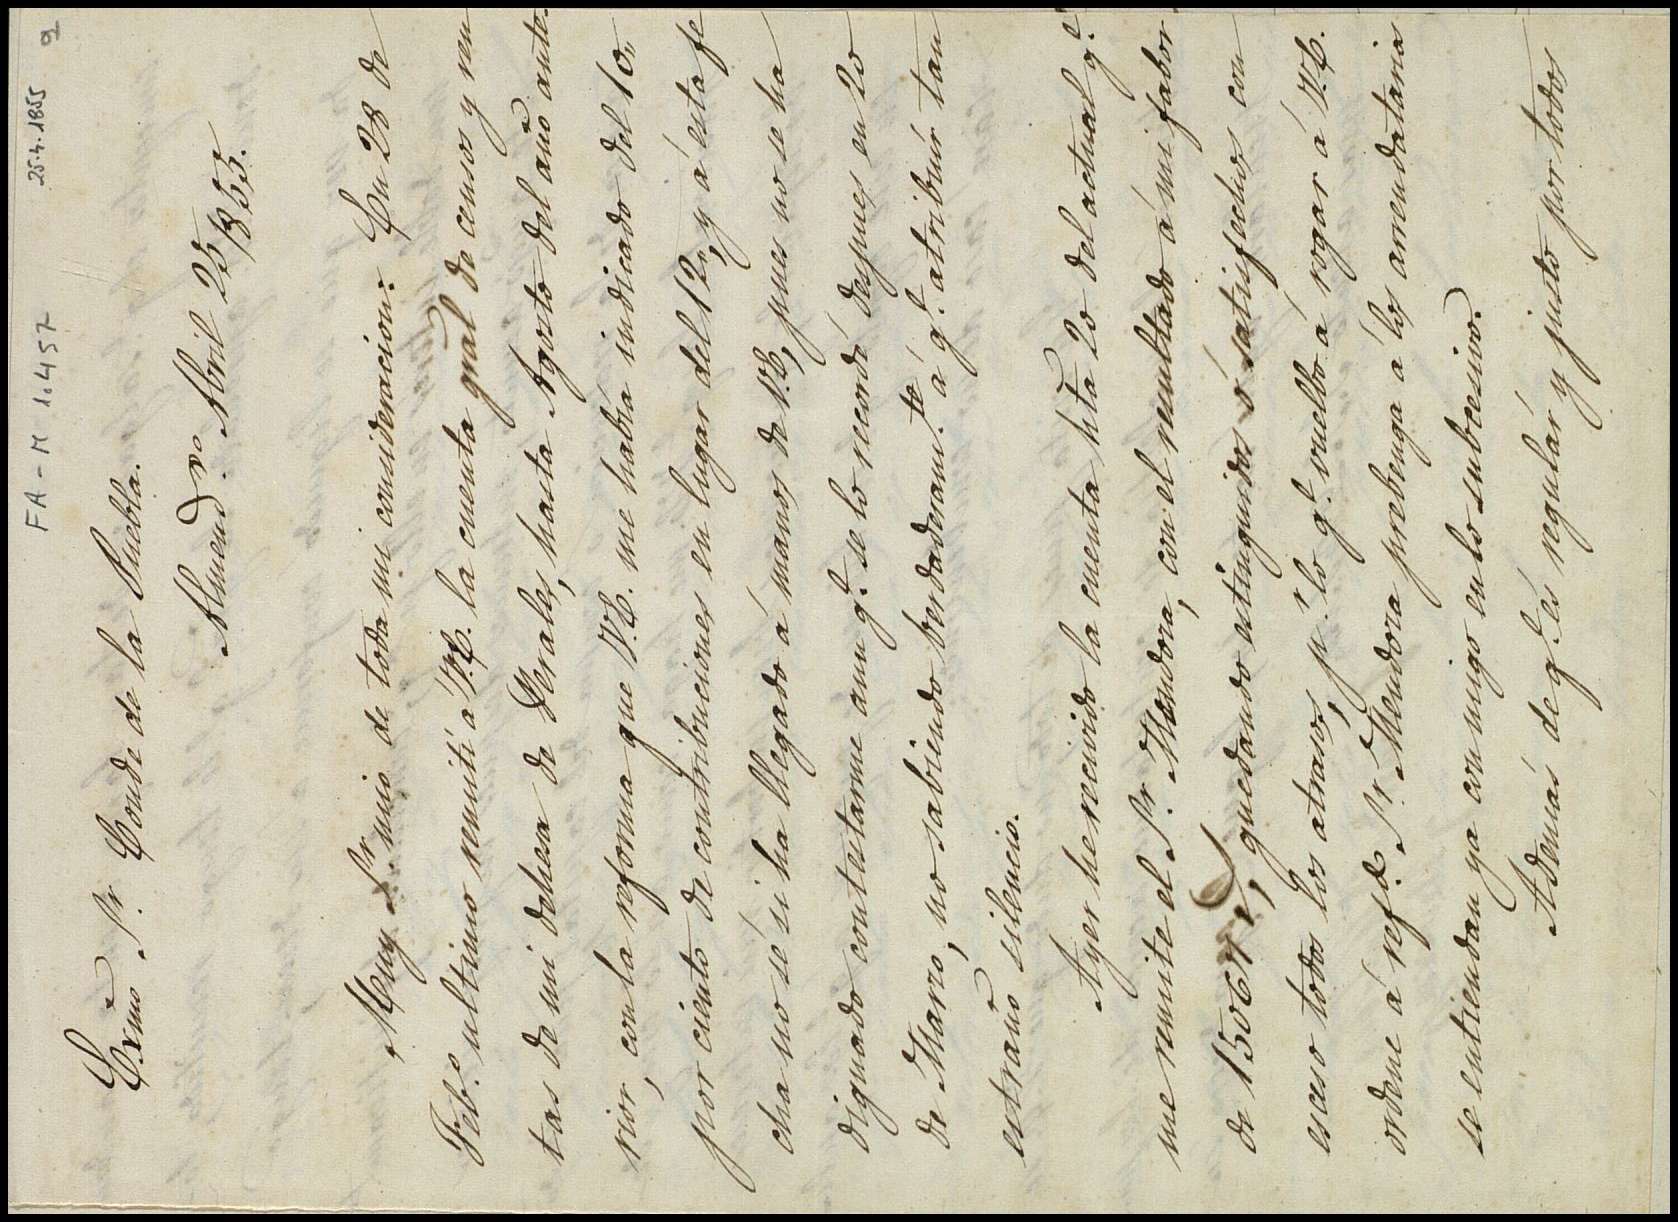 FA-M 1.457
25.4.1855
Exmo. Sr. Conde de la Puebla.
Almendo. Abril 25/855.
Muy Sr. mio de toda mi consideracion: En 28 de
Febo. ultimo remití a V.E. la cuenta gral de censos y ren
tas de mi dehesa de Perales, hasta Agosto del año ante
rior, con la reforma que V.E. me habia indicado del 10,,
por ciento de contribuciones en lugar del 12,, y á esta fe
cha no sé si ha llegado á manos de V.E., pues no se ha
dignado contestarme aun qe. se lo recordé despues en 20
de Marzo, no sabiendo berdaderamte. á qe. atribuír tan
estraño silencio.
Ayer he recivido la cuenta hta 20 del actual qe.
me remite el Sr. Mendora, con el resultado á mi fabor
de 1506 rs, quedando estinguidos ó satisfechos con
esceso todos los atrasos, pr. lo qe. vuelbo á rogar á V.E.
ordene á refdo. Sr. Mendora prebenga á los arrendatarios
se entiendan ya conmigo en lo subcesivo.
Ademas de qe. es regulár y justo por todos